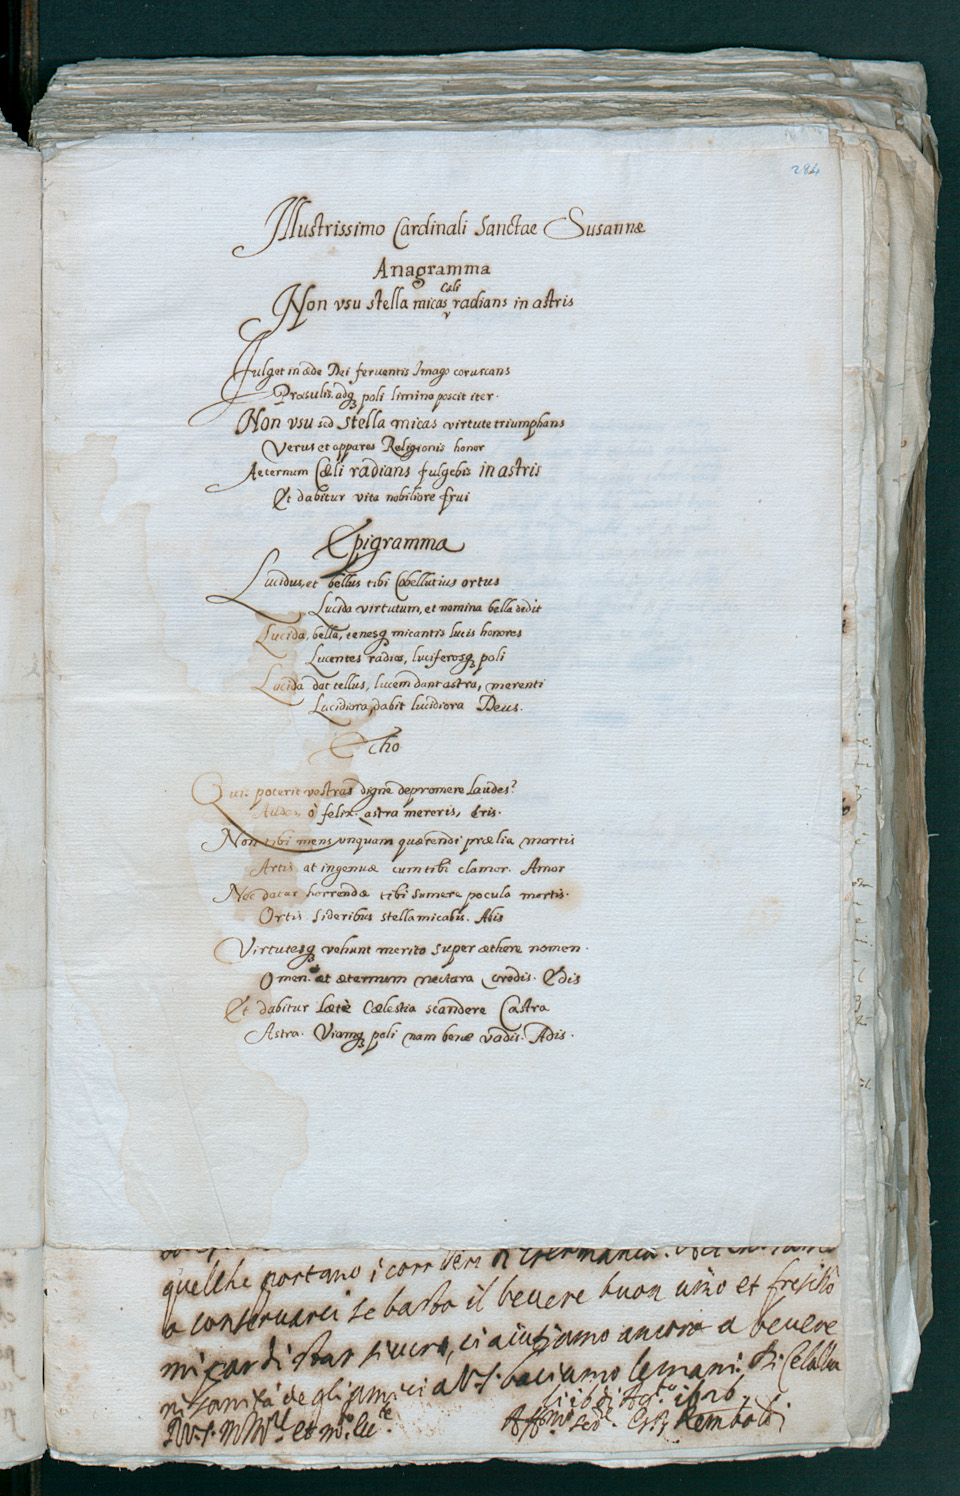 284
Illustrissimo Cardinali Sanctae Susannæ
Anagramma
Cæli
Non vsu stella micas radians in astris
Fulget in æde Dei feruentis Imago coruscans
Præsulis, adq; poli limina poscit iter.
Non vsu sed stella micas virtute triumphans
Verus et appares Religionis honor
Aeternum Cæli radians fulgebis in astris
Et dabitur vita nobiliore frui
Epigramma
Lucidus, et bellus tibi Cobellutius ortus
Lucida virtutum, et nomina bella dedit
Lucida, bella, tenesq; micantis lucis honores
Lucentes radios, luciferosq; poli
Lucida dat tellus, lucem dant astra, merenti
Lucidiora, dabit lucidiora Deus.
Echo
Quis poterit vestras digne depromere laudes?
Audes, ò felix. astra mereris, Eris.
Non tibi mens vnquam quærendi prælia martis
Artis at ingenuæ cum tibi clamor. Amor
Nec datur horrendæ tibi sumere pocula mortis.
Ortis sideribus stella micabis. Abis
Virtutesq; vehunt merito super æthere nomen.
Omen. et æternum nectara credis. Edis
Et dabitur lætè Cælestia scandere Castra
Astra. Viamq; poli nam bene vadis. Adis.
quelche portano i corrieri
a conseruarci se basta il beuere buon uino et freschò
mi car di star sicuro, ci aiutiamo ancora a beuere
sanità de gli amici a V.S. baciamo le mani. Di